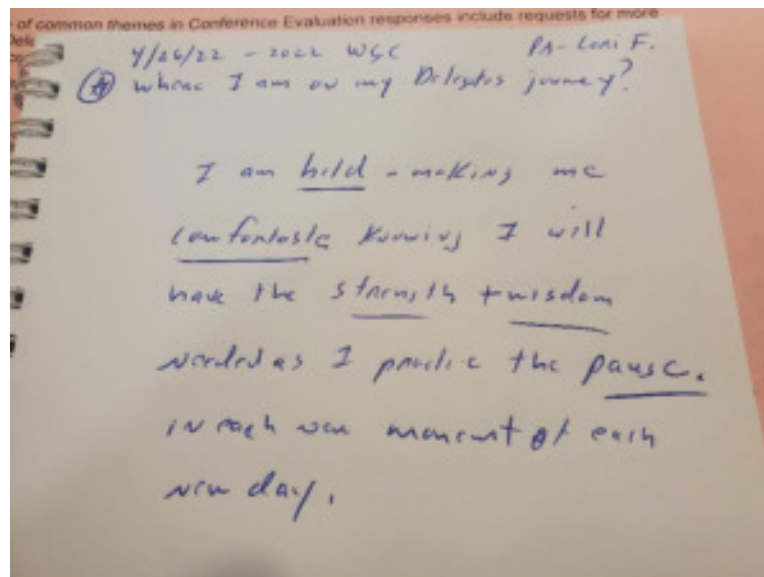 of common themes in Conference Evaluation responses include requests for more
4/26/22 - 2022 WSC PA- Lori F.
where I am on my Delegates journey?
I am held - making me
comfortable knowing I will
have the strength + wisdom
needed as I practice the pause.
in each new moment of each
new day.